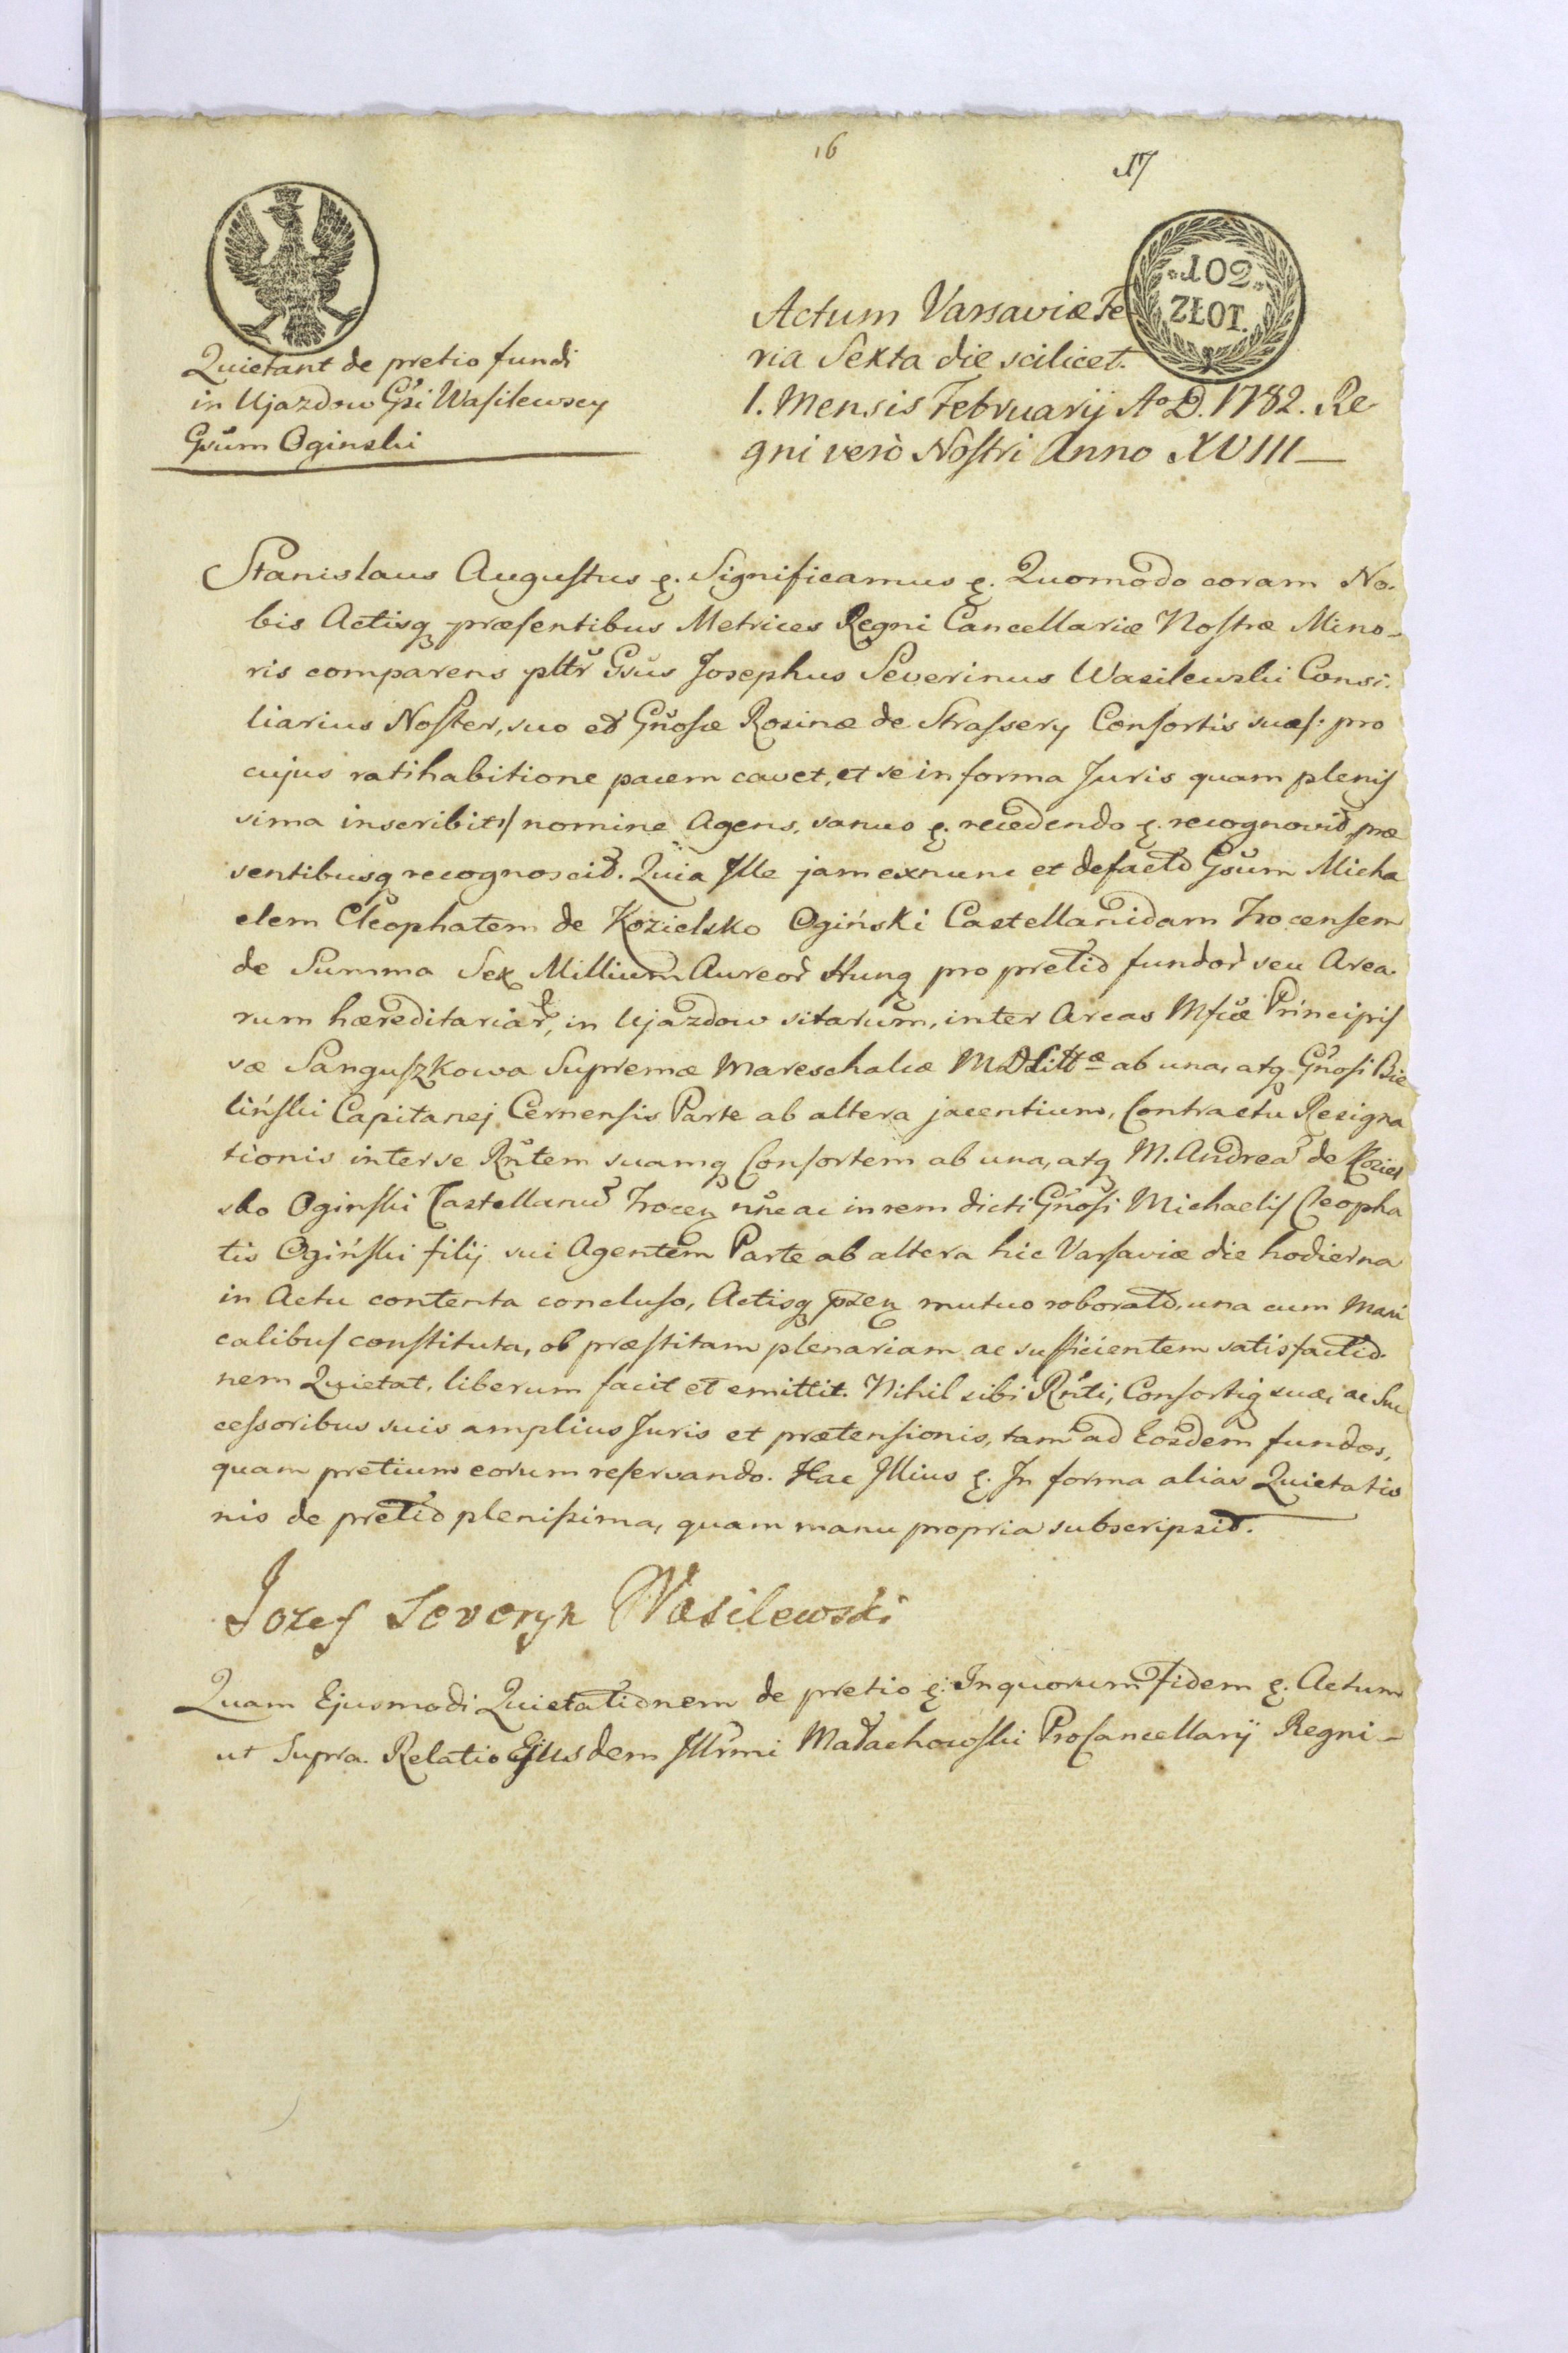 16
17
102
ZŁOT.
Quietant de pretio fundi
in Ujazdow Gsi Wasilewscy
Gsum Oginski
Actum Varsaviæ Fe
ria Sexta die scilicet
1. Mensis Februarij Ao D. 1782. Re
gni verò Nostri Anno XVIII
Stanislaus Augustus &. Significamus &. Quomodo coram No-
bis Actisq præsentibus Metrices Regni Cancellariæ Nostræ Mino-
ris comparens plttr Gsus Josephus Severinus Wasilewski Consi-
liarius Noster, suo et Gnosæ Rosinæ de Strassery Consortis suæ /: pro
cujus ratihabitione pacem cavet, et se in forma Juris quam plenis
sima inscribit :/ nomine Agens, sanus &. recedendo &. recognovit, præ
sentibusq recognoscit. Quia Ille jam exnunc et defacto Gsum Micha
elem Cleophatem de Kozielsko Ogiński Castellanidam Trocensem
de Summa Sex Millium Aureor Hung pro pretio fundor seu Area-
rum hæreditariar, in Ujazdow sitarum, inter Areas Mfcæ Principis
sæ Sanguszkowa Supremæ Mareschalcæ M D Littæ ab una, atq Gnosi Bie
liński Capitanej Cernensis Parte ab altera jacentium, Contractu Resigna
tionis inter se Rntem suamq Consortem ab una, atq M. Andream de Koziel
sko Oginski Castellanum Trocen nne ac in rem dicti Gnosi Michaelis Cleopha
tis Ogiński filij sui Agentem Parte ab altera hic Varsaviæ die hodierna
in Actu contenta concluso, Actisq pten mutuo roborato, una cum Mari
calibus constituta, ob præstitam plenariam ac sufficientem satisfactio-
nem Quietat, liberum facit et emittit. Nihil sibi Rnti, Consortiq suæ, ac Suc
cessoribus suis amplius Juris et prætensionis, tam ad Eosdem fundos,
quam pretium eorum reservando. Hac Illius &. In forma alias Quietatio
nis de pretio plenissima, quam manu propria subscripsit.
Jozef Seweryn Wasilewski
Quam Ejusmodi Quietationem de pretio &. In quorum Fidem &. Actum
ut Supra. Relatio Ejusdem Illrmi Małachowski ProCancellarij Regni -